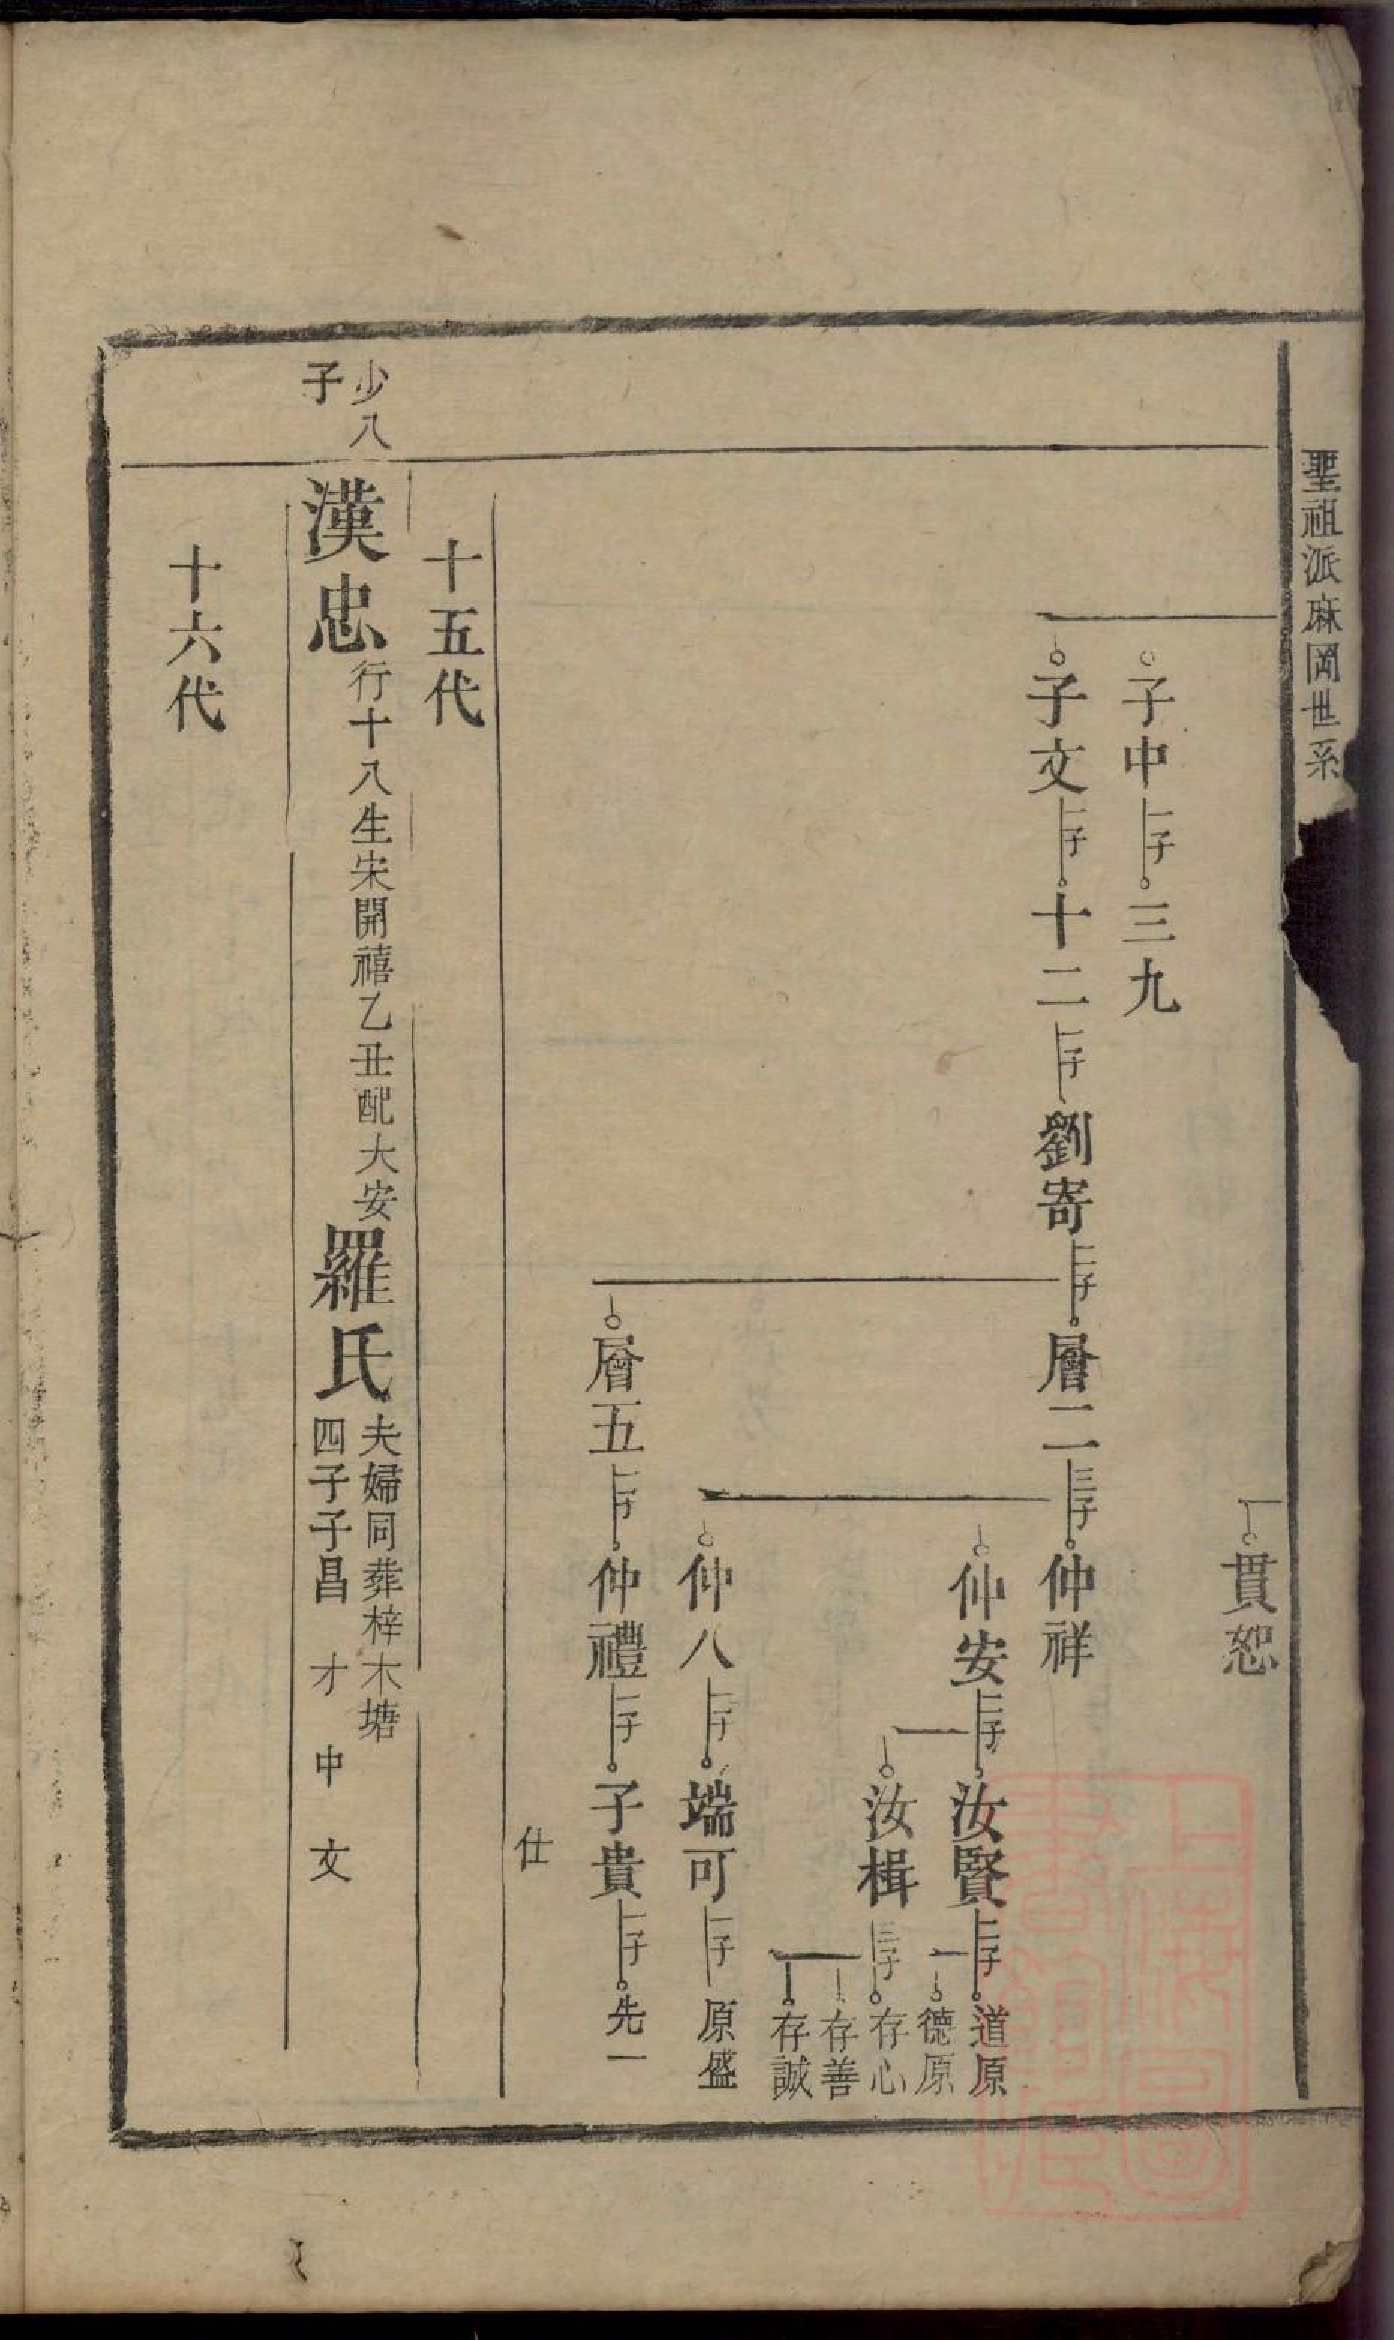 聖祖派麻岡世系
貫恕
子中 一子 三九
子文 一子 十二 一子 劉寄 二子 層二 三子 仲祥
仲安 二子 汝賢 二子 道原
德原
汝楫 三子 存心
存善
存誠
仲八 一子 端可 一子 原盛
層五 一子 仲禮 一子 子貴 一子 先一
仕
十五代
少八
子
漢忠 行十八生宋開禧乙丑配大安 羅氏 夫婦同葬梓木塘
四子子昌 才 中 文
十六代
上海圖
書館藏